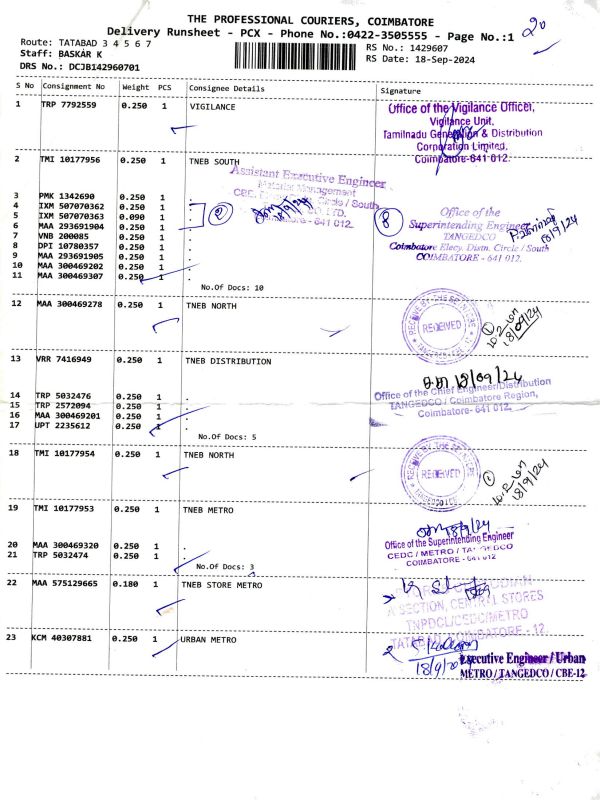 THE PROFESSIONAL COURIERS, COIMBATORE
Delivery Runsheet - PCX - Phone No.:0422-3505555 - Page No.:1
20
Route: TATABAD 3 4 5 6 7
RS No.: 1429607
Staff: BASKAR K
RS Date: 18-Sep-2024
DRS No.: DCJB142960701
S No Consignment No Weight PCS Consignee Details Signature
1 TRP 7792559 0.250 1 VIGILANCE
Office of the Vigilance Officer,
Vigilance Unit,
Tamilnadu Generation & Distribution
Corporation Limited,
Coimbatore-641 012.
2 TMI 10177956 0.250 1 TNEB SOUTH
Assistant Executive Engineer
Material Management
Circle / South
CO. LTD.
- 641 012
3 PMK 1342690 0.250 1 .
4 IXM 507070362 0.250 1 .
5 IXM 507070363 0.090 1 .
6 MAA 293691904 0.250 1 .
7 VNB 200085 0.250 1 .
8 DPI 10780357 0.250 1 .
9 MAA 293691905 0.250 1 .
10 MAA 300469202 0.250 1 .
11 MAA 300469307 0.250 1 .
2
18/9/24
8
Office of the
Superintending Engineer
TANGEDCO
Coimbatore Elecy. Distn. Circle / South
COIMBATORE - 641 012.
18/9/24
No.Of Docs: 10
12 MAA 300469278 0.250 1 TNEB NORTH
RECEIVED
18/09/24
13 VRR 7416949 0.250 1 TNEB DISTRIBUTION
18/09/24
Office of the Chief Engineer/Distribution
TANGEDCO / Coimbatore Region,
Coimbatore- 641 012.
14 TRP 5032476 0.250 1 .
15 TRP 2572094 0.250 1 .
16 MAA 300469201 0.250 1 .
17 UPT 2235612 0.250 1 .
No.Of Docs: 5
18 TMI 10177954 0.250 1 TNEB NORTH
RECEIVED
18/9/24
19 TMI 10177953 0.250 1 TNEB METRO
18/9/24
Office of the Superintending Engineer
CEDC / METRO / TANGEDCO
COIMBATORE - 641 012
20 MAA 300469320 0.250 1 .
21 TRP 5032474 0.250 1 .
No.Of Docs: 3
22 MAA 575129665 0.180 1 TNEB STORE METRO
A SECTION, CENTRAL STORES
TNPDCL/CEDC/METRO
TATABAD, COIMBATORE - 12
23 KCM 40307881 0.250 1 URBAN METRO
2
18/9/20
Executive Engineer / Urban
METRO / TANGEDCO / CBE-12